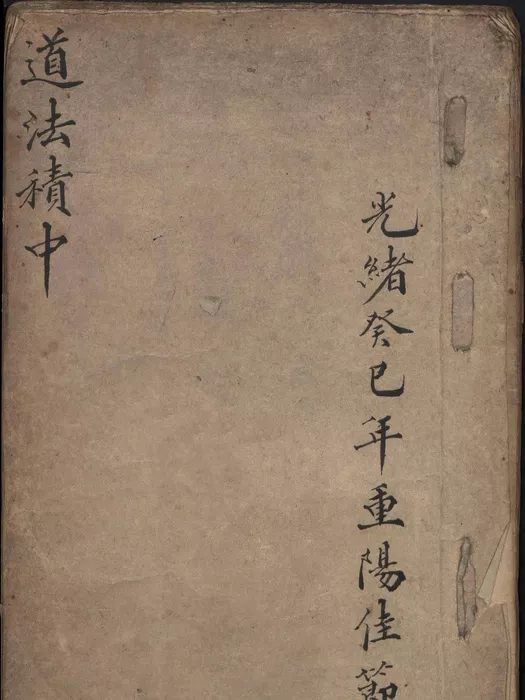 光緒癸巳年重陽佳節
道法積中